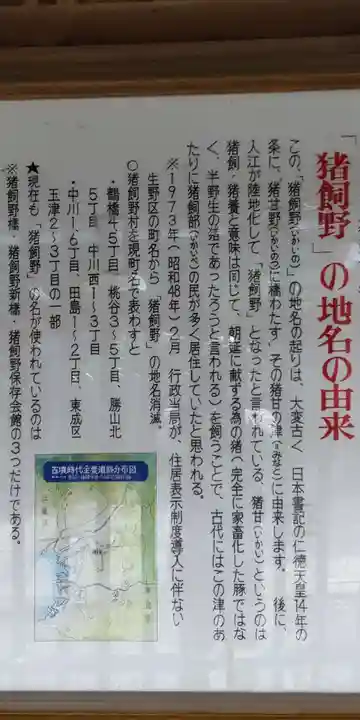 「猪飼野」の地名の由来
この、「猪飼野(いかいの)」の地名の起りは、大変古く、日本書記の仁徳天皇14年の
条に、「猪甘野(いかいの)に橋わたす、その猪甘の津(みなと)に由来します。 後に、
入江が陸地化して、「猪飼野」となったと言われている、猪甘(いかい)というのは
猪飼・猪養と意味は同じで、朝廷に献ずる為の猪(完全に家畜化した豚ではな
く、半野生の猪であったろうと言われる)を飼うことで、古代にはこの津のあ
たりに猪飼部(いかいべ)の民が多く居住していたと思われる。
※1973年(昭和48年)2月 行政当局が、住居表示制度導入に伴ない
生野区の町名から「猪飼野」の地名消滅。
○猪飼野村を現町名で表わすと
・鶴橋4〜5丁目、桃谷3〜5丁目、勝山北
5丁目、中川西1〜3丁目
・中川1〜6丁目、田島1〜2丁目、東成区
玉津2〜3丁目の一部
★現在も「猪飼野」の名が使われているのは
※猪飼野橋、猪飼野新橋、猪飼野保存会館の3つだけである。
古墳時代全要遺跡分布図